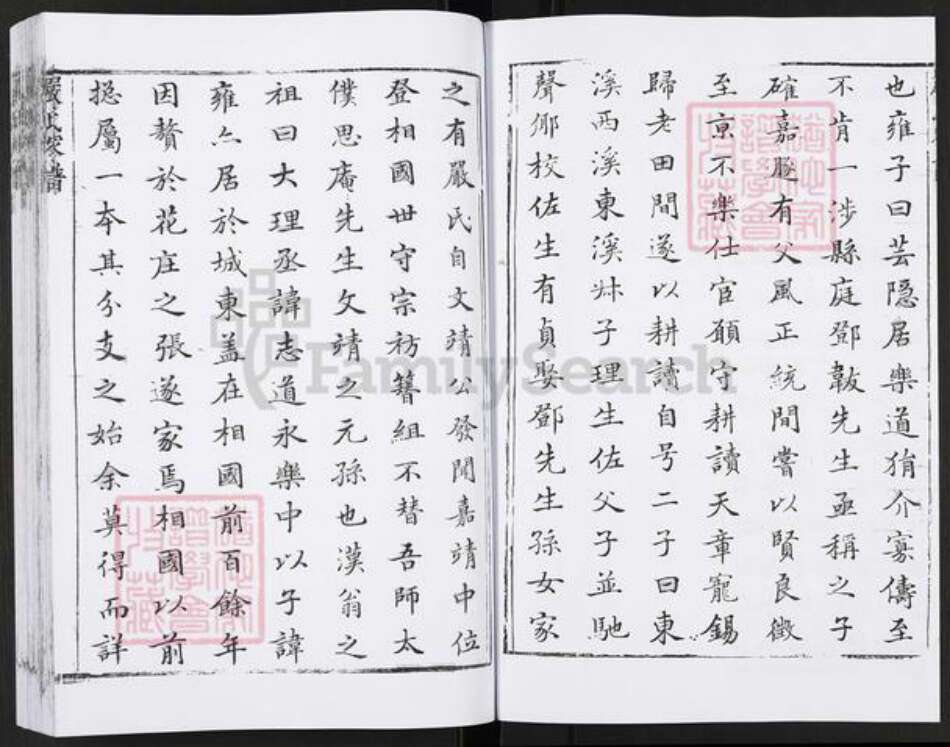 也雍子曰芸隠居樂道狷介寡儔至
不肯一涉縣庭鄧韍先生亟稱之子
確嘉䐁有父風正統間嘗以賢良徵
至京不樂仕宦願守耕讀天章寵錫
歸老田間遂以耕讀自号二子曰東
溪西溪東溪牀子理生佐父子並馳
聲郷校佐生有貞娶鄧先生孫女家
之有嚴氏自文靖公發聞嘉靖中位
登相國世守宗祊簪組不替吾師太
僕思庵先生文靖之元孫也漢翁之
祖曰大理丞諱志道永樂中以子諱
雍亦居於城東盖在相國前百餘年
因贅於花庄之張遂家焉相國以前
揔屬一本其分支之始余莫得而詳
嚴氏家譜
FamilySearch